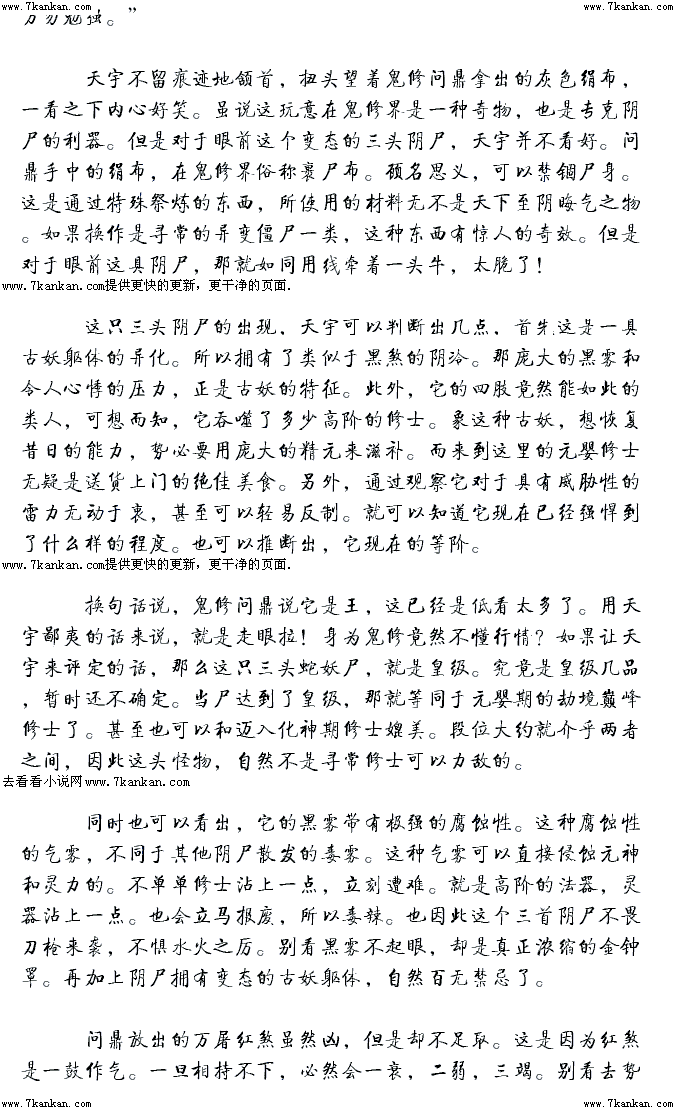 www.7kankan.com www.7kankan.com
万勿勉强。”
天宇不留痕迹地颔首，扭头望着鬼修问鼎拿出的灰色绢布，
一看之下内心好笑。虽说这玩意在鬼修界是一种奇物，也是专克阴
尸的利器。但是对于眼前这个变态的三头阴尸，天宇并不看好。问
鼎手中的绢布，在鬼修界俗称裹尸布。顾名思义，可以禁锢尸身。
这是通过特殊祭炼的东西，所使用的材料无不是天下至阴晦气之物
。如果换作是寻常的异变僵尸一类，这种东西有惊人的奇效。但是
对于眼前这具阴尸，那就如同用线牵着一头牛，太脆了！
www.7kankan.com提供更快的更新，更干净的页面.
这只三头阴尸的出现，天宇可以判断出几点，首先这是一具
古妖躯体的异化。所以拥有了类似于黑煞的阴冷。那庞大的黑雾和
令人心悸的压力，正是古妖的特征。此外，它的四肢竟然能如此的
类人，可想而知，它吞噬了多少高阶的修士。象这种古妖，想恢复
昔日的能力，势必要用庞大的精元来滋补。而来到这里的元婴修士
无疑是送货上门的绝佳美食。另外，通过观察它对于具有威胁性的
雷力无动于衷，甚至可以轻易反制。就可以知道它现在已经强悍到
了什么样的程度。也可以推断出，它现在的等阶。
www.7kankan.com提供更快的更新，更干净的页面.
换句话说，鬼修问鼎说它是王，这已经是低看太多了。用天
宇鄙夷的话来说，就是走眼拉！身为鬼修竟然不懂行情？如果让天
宇来评定的话，那么这只三头蛇妖尸，就是皇级。究竟是皇级几品
，暂时还不确定。当尸达到了皇级，那就等同于元婴期的劫境巅峰
修士了。甚至也可以和迈入化神期修士媲美。段位大约就介乎两者
之间，因此这头怪物，自然不是寻常修士可以力敌的。
去看看小说网www.7kankan.com
同时也可以看出，它的黑雾带有极强的腐蚀性。这种腐蚀性
的气雾，不同于其他阴尸散发的毒雾。这种气雾可以直接侵蚀元神
和灵力的。不单单修士沾上一点，立刻遭难。就是高阶的法器，灵
器沾上一点。也会立马报废，所以毒辣。也因此这个三首阴尸不畏
刀枪来袭，不惧水火之厉。别看黑雾不起眼，却是真正浓缩的金钟
罩。再加上阴尸拥有变态的古妖躯体，自然百无禁忌了。
问鼎放出的万屠红煞虽然凶，但是却不足取。这是因为红煞
是一鼓作气。一旦相持不下，必然会一衰，二弱，三竭。别看去势
www.7kankan.com www.7kankan.com